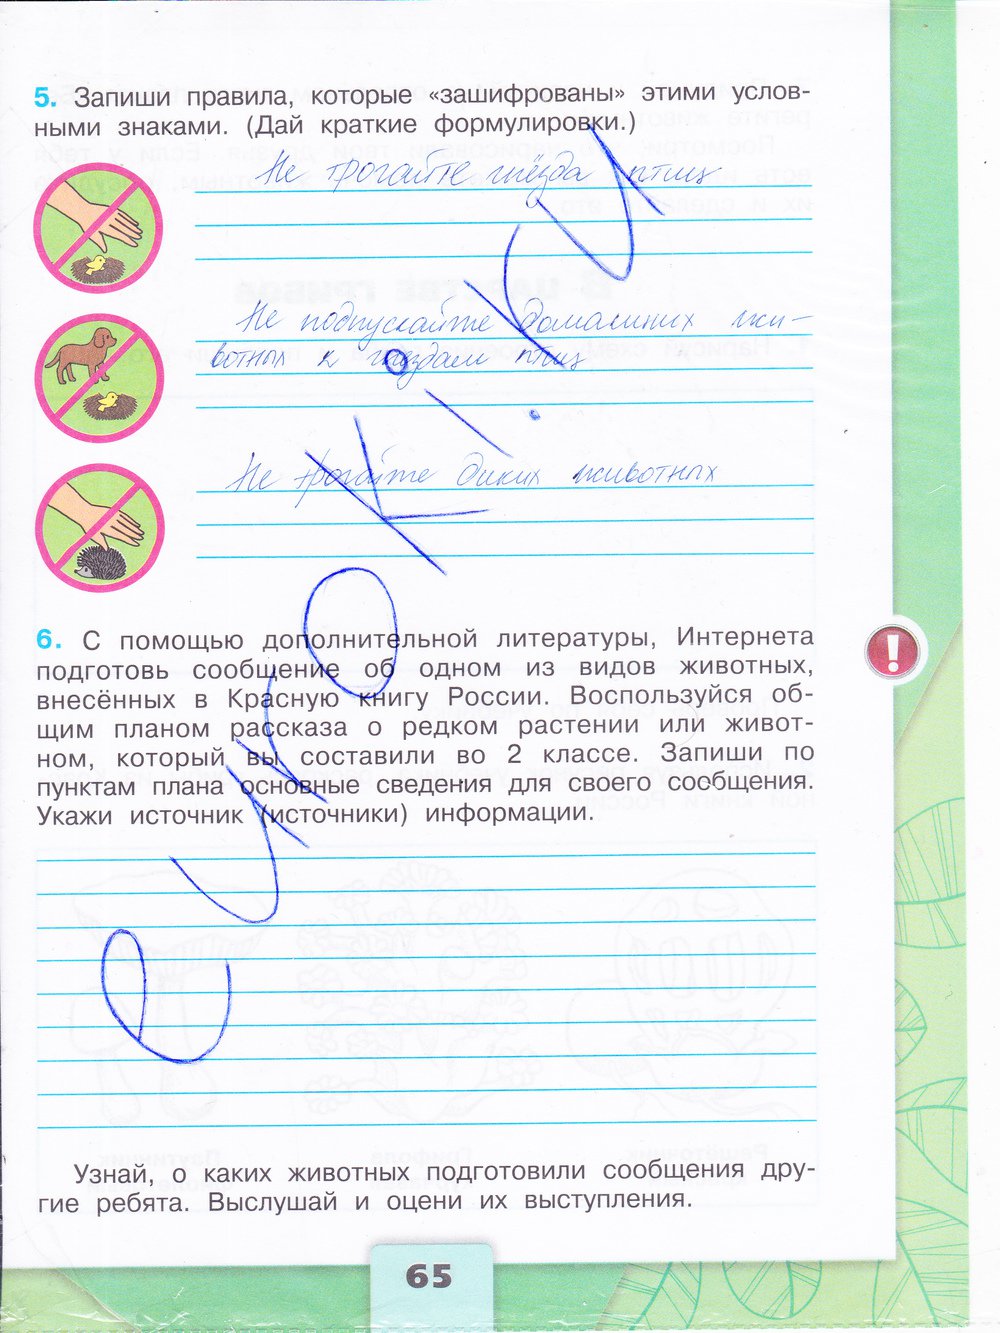 5. Запиши правила, которые «зашифрованы» этими услов-
ными знаками. (Дай краткие формулировки.)
Не трогайте гнёзда птиц
Не подпускайте домашних жи-
вотных к гнёздам птиц
Не трогайте диких животных
6. С помощью дополнительной литературы, Интернета
подготовь сообщение об одном из видов животных,
внесённых в Красную книгу России. Воспользуйся об-
щим планом рассказа о редком растении или живот-
ном, который вы составили во 2 классе. Запиши по
пунктам плана основные сведения для своего сообщения.
Укажи источник (источники) информации.
!
Узнай, о каких животных подготовили сообщения дру-
гие ребята. Выслушай и оцени их выступления.
65
euroki.ru